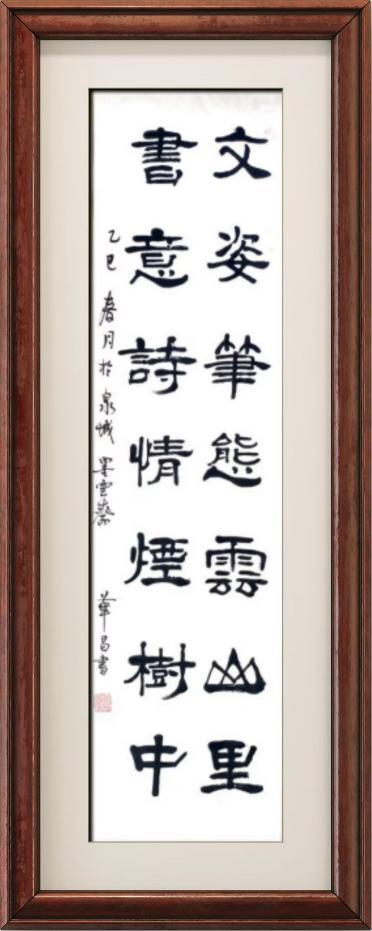 文姿筆態雲山里
書意詩情煙樹中
乙巳春月於泉城墨雲齋 華昌書